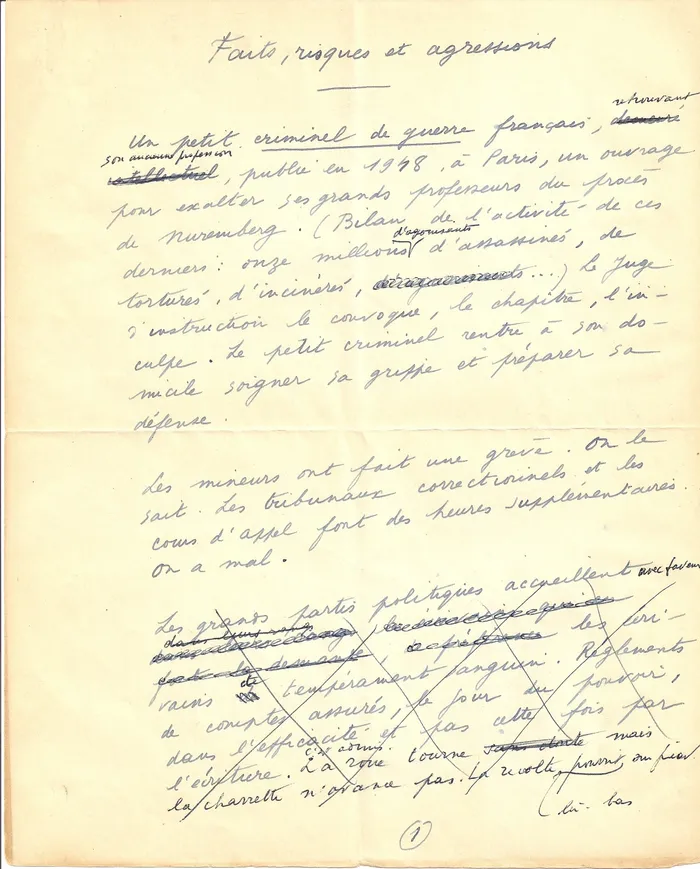 Faits, risques et agressions
retrouvant
Un petit criminel de guerre français, demeuré
son ancienne profession
intellectuel, publie en 1948, à Paris, un ouvrage
pour exalter ses grands professeurs du procès
de Nuremberg. (Bilan de l'activité de ces
d'agonisants
derniers : onze millions d'assassinés, de
torturés, d'incinérés, ...) Le Juge
d'instruction le convoque, le chapitre, l'in-
culpe. Le petit criminel rentre à son do-
micile soigner sa grippe et préparer sa
défense.
Les mineurs ont fait une grève. On le
sait. Les tribunaux correctionnels et les
cours d'appel font des heures supplémentaires.
On a mal.
Les grands partis politiques accueillent avec faveur
dans leurs rangs
les écri-
de
vains tempérament sanguin. Règlements
de comptes assurés, le jour du pouvoir,
dans l'efficacité et pas cette fois par
c'est admis.
l'écriture. La roue tourne sans doute mais
la charrette n'avance pas. La révolte pourrit sur pied.
là-bas
1